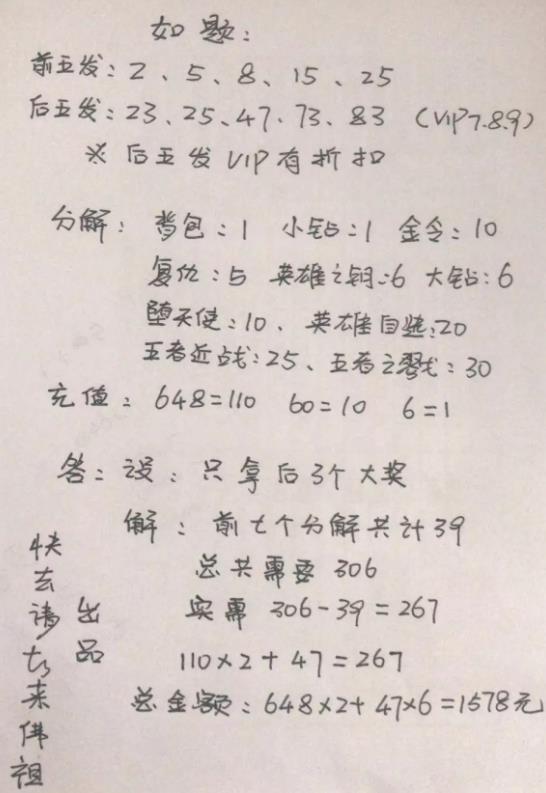 如题：
前五发：2、5、8、15、25
后五发：23、25、47、73、83 （VIP7.8.9）
※ 后五发VIP有折扣
分解：背包：1 小钻：1 金令：10
复仇：5 英雄之钥：6 大钻：6
堕天使：10、英雄自选：20
王者近战：25、王者之翼：30
充值：648=110 60=10 6=1
答：设：只拿后3个大奖
解：前七个分解共计39
总共需要306
实需 306-39=267
110×2+47=267
总金额：648×2+47×6=1578元
快去请如来佛祖
出品